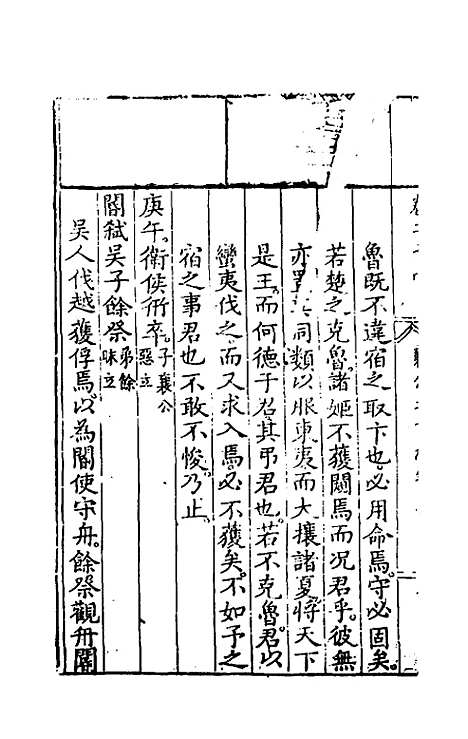 魯既不違宿之取卞也必用命焉守必固矣
若楚之克魯諸姬不獲闚焉而況君乎彼無
亦置其同類以服東夷而大攘諸夏將天下
是王而何德于君其弔君也若不克魯君以
蠻夷伐之而又求入焉必不獲矣不如予之
宿之事君也不敢不悛乃止
庚午衛侯衎卒子襄公
惡立
閽弒吳子餘祭弟餘
昧立
吳人伐越獲俘焉以為閽使守舟餘祭觀舟閽